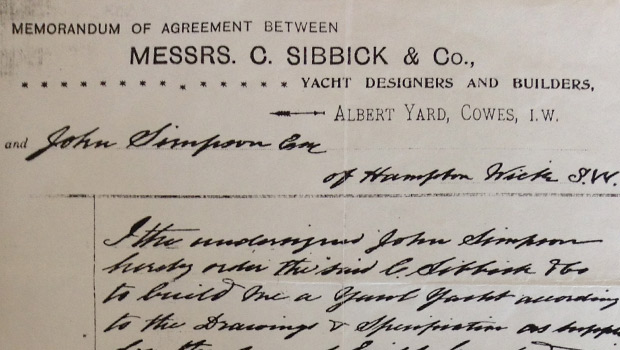 MEMORANDUM OF AGREEMENT BETWEEN
MESSRS. C. SIBBICK & Co.,
YACHT DESIGNERS AND BUILDERS,
ALBERT YARD, COWES, I.W.
and John Simpson Esq
of Hampton Wick S.W.
I the undersigned John Simpson
hereby order the said C. Sibbick & Co
to build me a Yawl Yacht according
to the Drawings & Specification as